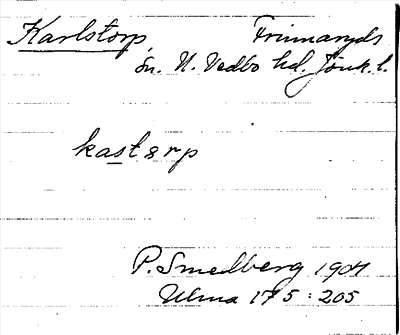 Karlstorp, Frinnaryds
sn. N. Vedbo hd. Jönk. l.
kastərp
P. Smedberg 1901
Ulma 175:205